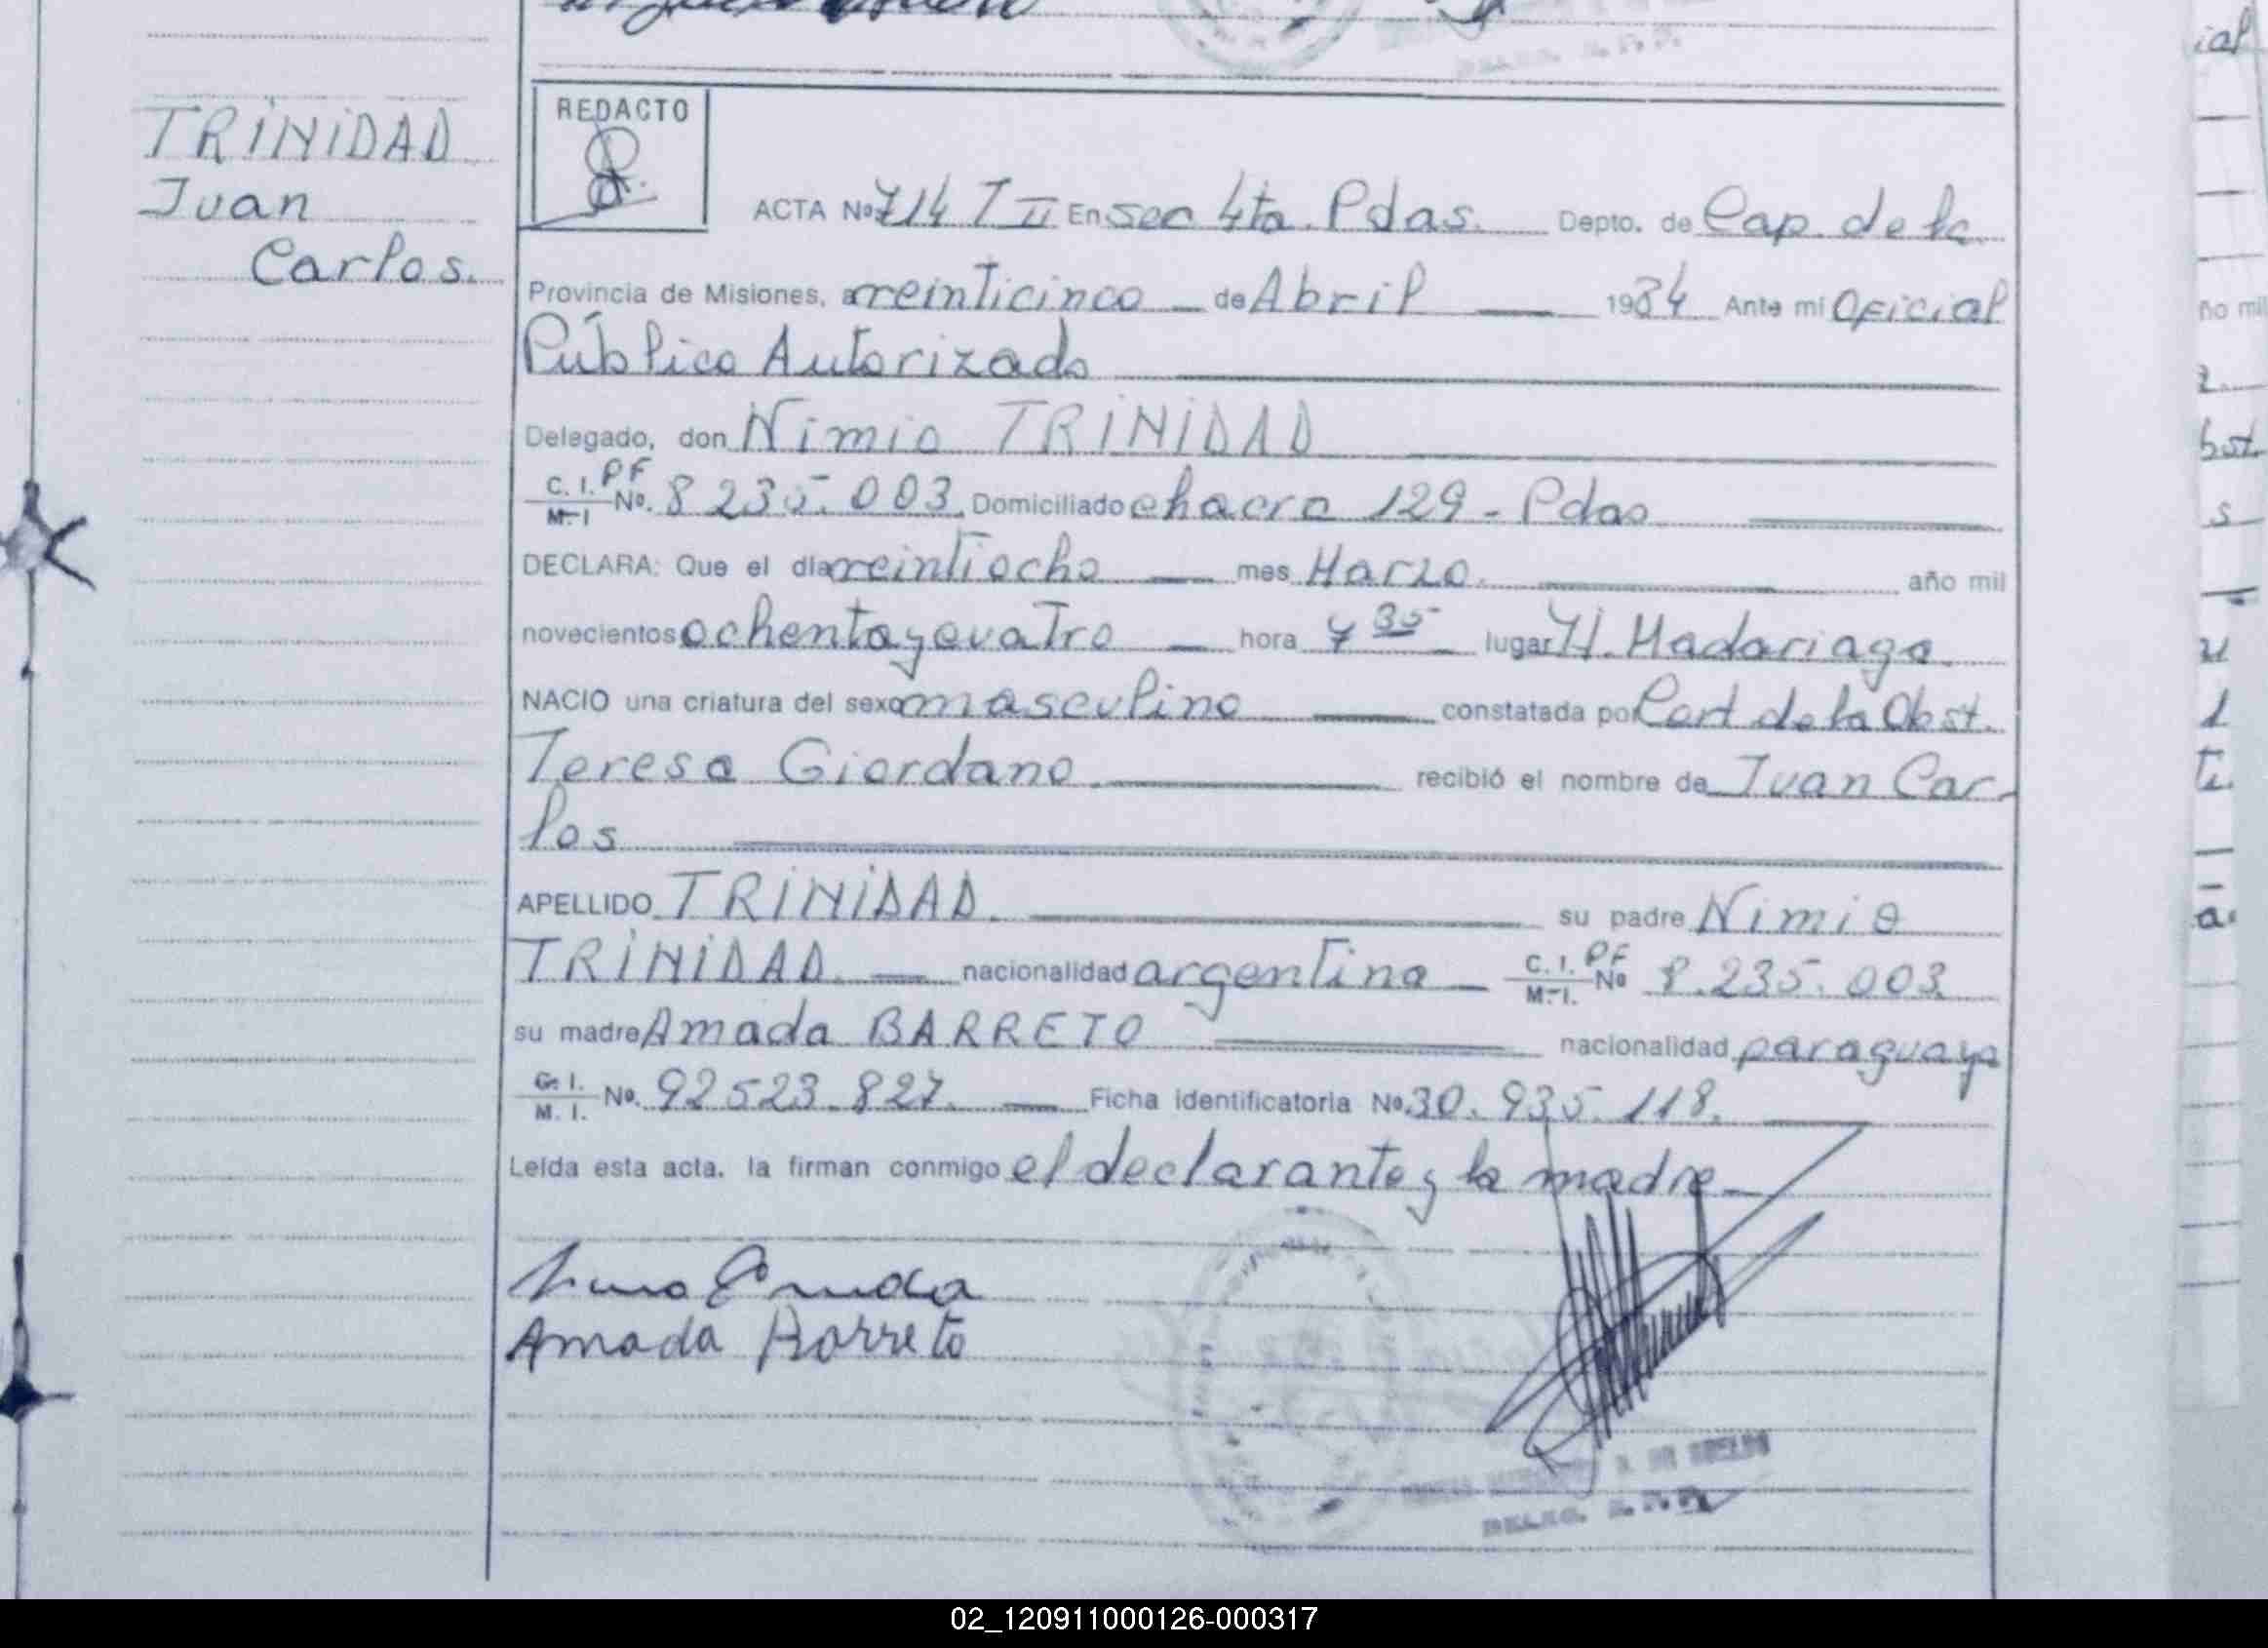 TRINIDAD
Juan
Carlos.
REDACTO
ACTA Nº 714 T II En sec 4ta. Pdas. Depto. de Cap. de la
Provincia de Misiones, a veinticinco de Abril 1984 Ante mi Oficial
Público Autorizado
Delegado, don Nimio TRINIDAD
C. I. PF
M. I Nº. 8 235.003. Domiciliado chacra 129 - Pdas
DECLARA: Que el día veintiocho mes Marzo. año mil
novecientos ochenta y cuatro hora 7 35 lugar H. Madariaga.
NACIO una criatura del sexo masculino constatada por Cert de la Obst.
Teresa Giordano recibió el nombre de Juan Car-
los
APELLIDO TRINIDAD. su padre Nimio
TRINIDAD. nacionalidad argentina C. I. PF Nº 8.235.003
M. I.
su madre Amada BARRETO nacionalidad paraguaya
C. I.
M. I. Nº. 92 523.827. Ficha identificatoria Nº 30.935.118.
Leída esta acta. la firman conmigo el declarante y la madre
Amada Barreto
ial
ño mil
bst.
s
02_120911000126-000317